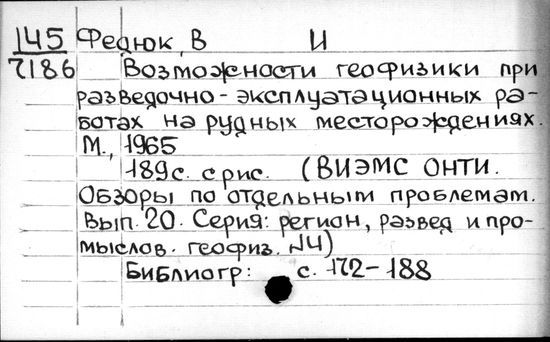 145 Федюк, В И
7186 Возможности геофизики при
разведочно-эксплуатационных ра-
ботах на рудных месторождениях.
М., 1965
189с. с рис. (ВИЭМС ОНТИ.
Обзоры по отдельным проблемам.
Вып. 20. Серия: регион, развед и про-
мыслов. геофиз. №4)
Библиогр: с. 172-188